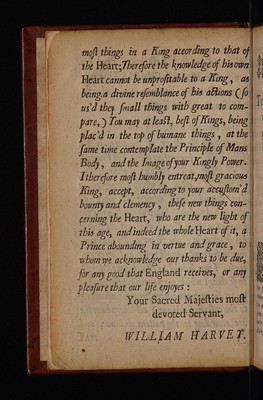 most things in a King according to that of
the Heart; Therefore the knowledge of his own
Heart cannot be unprofitable to a King, as
being a divine resemblance of his actions (so
us'd they small things with great to com-
pare,) You may at least, best of Kings, being
plac'd in the top of humane things, at the
same time contemplate the Principle of Mans
Body, and the Image of your Kingly Power.
I therefore most humbly entreat, most gracious
King, accept, according to your accustom'd
bounty and clemency, these new things con-
cerning the Heart, who are the new light of
this age, and indeed the whole Heart of it, a
Prince abounding in vertue and grace, to
whom we acknowledge our thanks to be due,
for any good that England receives, or any
pleasure that our life enjoyes:
Your Sacred Majesties most
devoted Servant,
WILLIAM HARVEY.